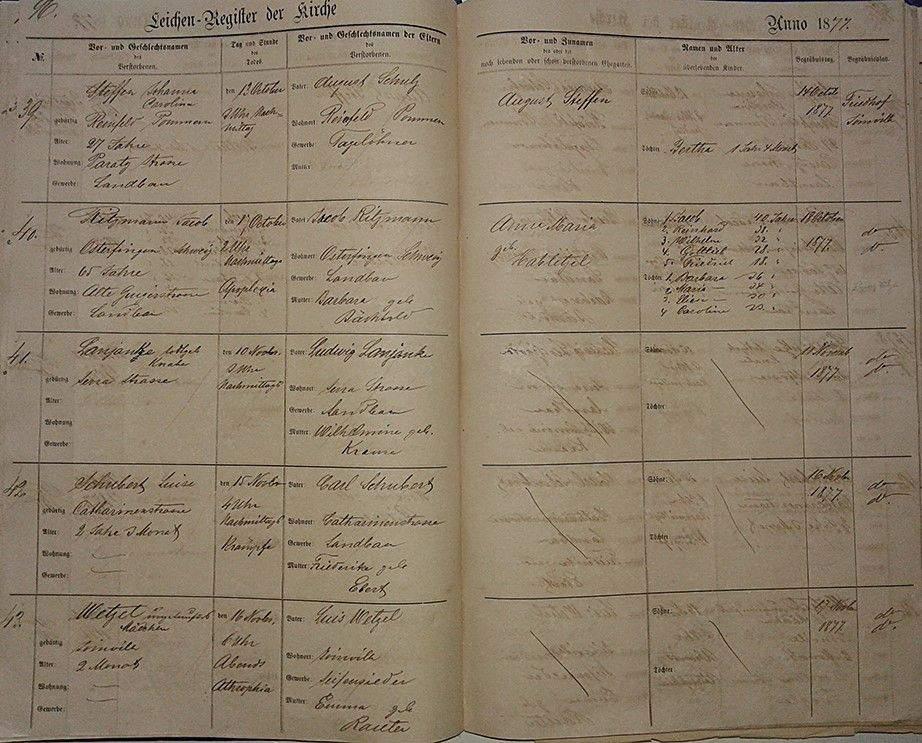 Leichen-Register der Kirche
Anno 1877.
№.
Vor- und Geschlechtsnamen
des
Verstorbenen.
Tag und Stunde
des
Todes
Vor- und Geschlechtsnamen der Eltern
des
Verstorbenen.
Vor- und Zunamen
des oder der
noch lebenden oder schon verstorbenen Ehegatten.
Namen und Alter
der
überlebenden Kinder.
Begräbnißtag.
Begräbnißplatz.
39.
Steffen Johanna
Carolina
gebürtig Reinfelt Pommern
Alter: 27 Jahre
Wohnung: Paraty Strasse
Gewerbe: Landbau
den 13 October
2 Uhr Nach-
mittag
Vater: August Schulz
Wohnort: Reinfeld Pommern
Gewerbe: Tagelöhner
Mutter:
August Steffen
Söhne:
Töchter: Bertha 1 Jahr 4 Monat
14 Octob
1877
Friedhof
Joinville
40.
Ritzmann Jacob
gebürtig Osterfingen Schweiz
Alter: 65 Jahre
Wohnung:
Gewerbe: Landbau
den 17 October
2 Uhr
Nachmittags
Apoplexia
Vater: Jacob Ritzmann
Wohnort: Osterfingen Schweiz
Gewerbe: Landbau
Mutter: Barbara geb
Bächtold
Anna Maria
geb.
Hablützel
Söhne: 1. Jacob 40 Jahre
2. Reinhard 38 "
3. Wilhelm 32 "
4. Gottlieb 28 "
5. Friedrich 18 "
Töchter: 1. Barbara 36 "
2. Maria 34 "
3. 30 "
4 Caroline 23 "
18 October
1877.
do
do
41.
Lanjanke todtgeb
Knabe
gebürtig Serra Strasse
Alter:
Wohnung
Gewerbe:
den 10 Novbr.
2 Uhr
Nachmittags
Vater: Ludwig Lanjanke
Wohnort: Serra Strasse
Gewerbe: Landbau
Mutter: Wilhelmine geb.
Krause
Söhne:
Töchter:
11 Novemb
1877.
do
do
42.
Schubert Luise
gebürtig Catharinenstrasse
Alter: 2 Jahr 3 Monat
Wohnung:
Gewerbe:
den 15 Novbr
4 Uhr
Nachmittags
Krämpfe
Vater: Carl Schubert
Wohnort: Catharinenstrasse
Gewerbe: Landbau
Mutter: Friederike geb
Ebert
Söhne:
Töchter
16 Novbr
1877.
do
do
43.
Wetzel ungetauftes
Mädchen
gebürtig Joinville
Alter: 2 Monat
Wohnung:
Gewerbe:
den 16 Novbr.
6 Uhr
Abends
Athrophia
Vater: Luis Wetzel
Wohnort: Joinville
Gewerbe: Seifensieder
Mutter: Emma geb
Rauter
Söhne:
Töchter
17 Novbr
1877.
do
do